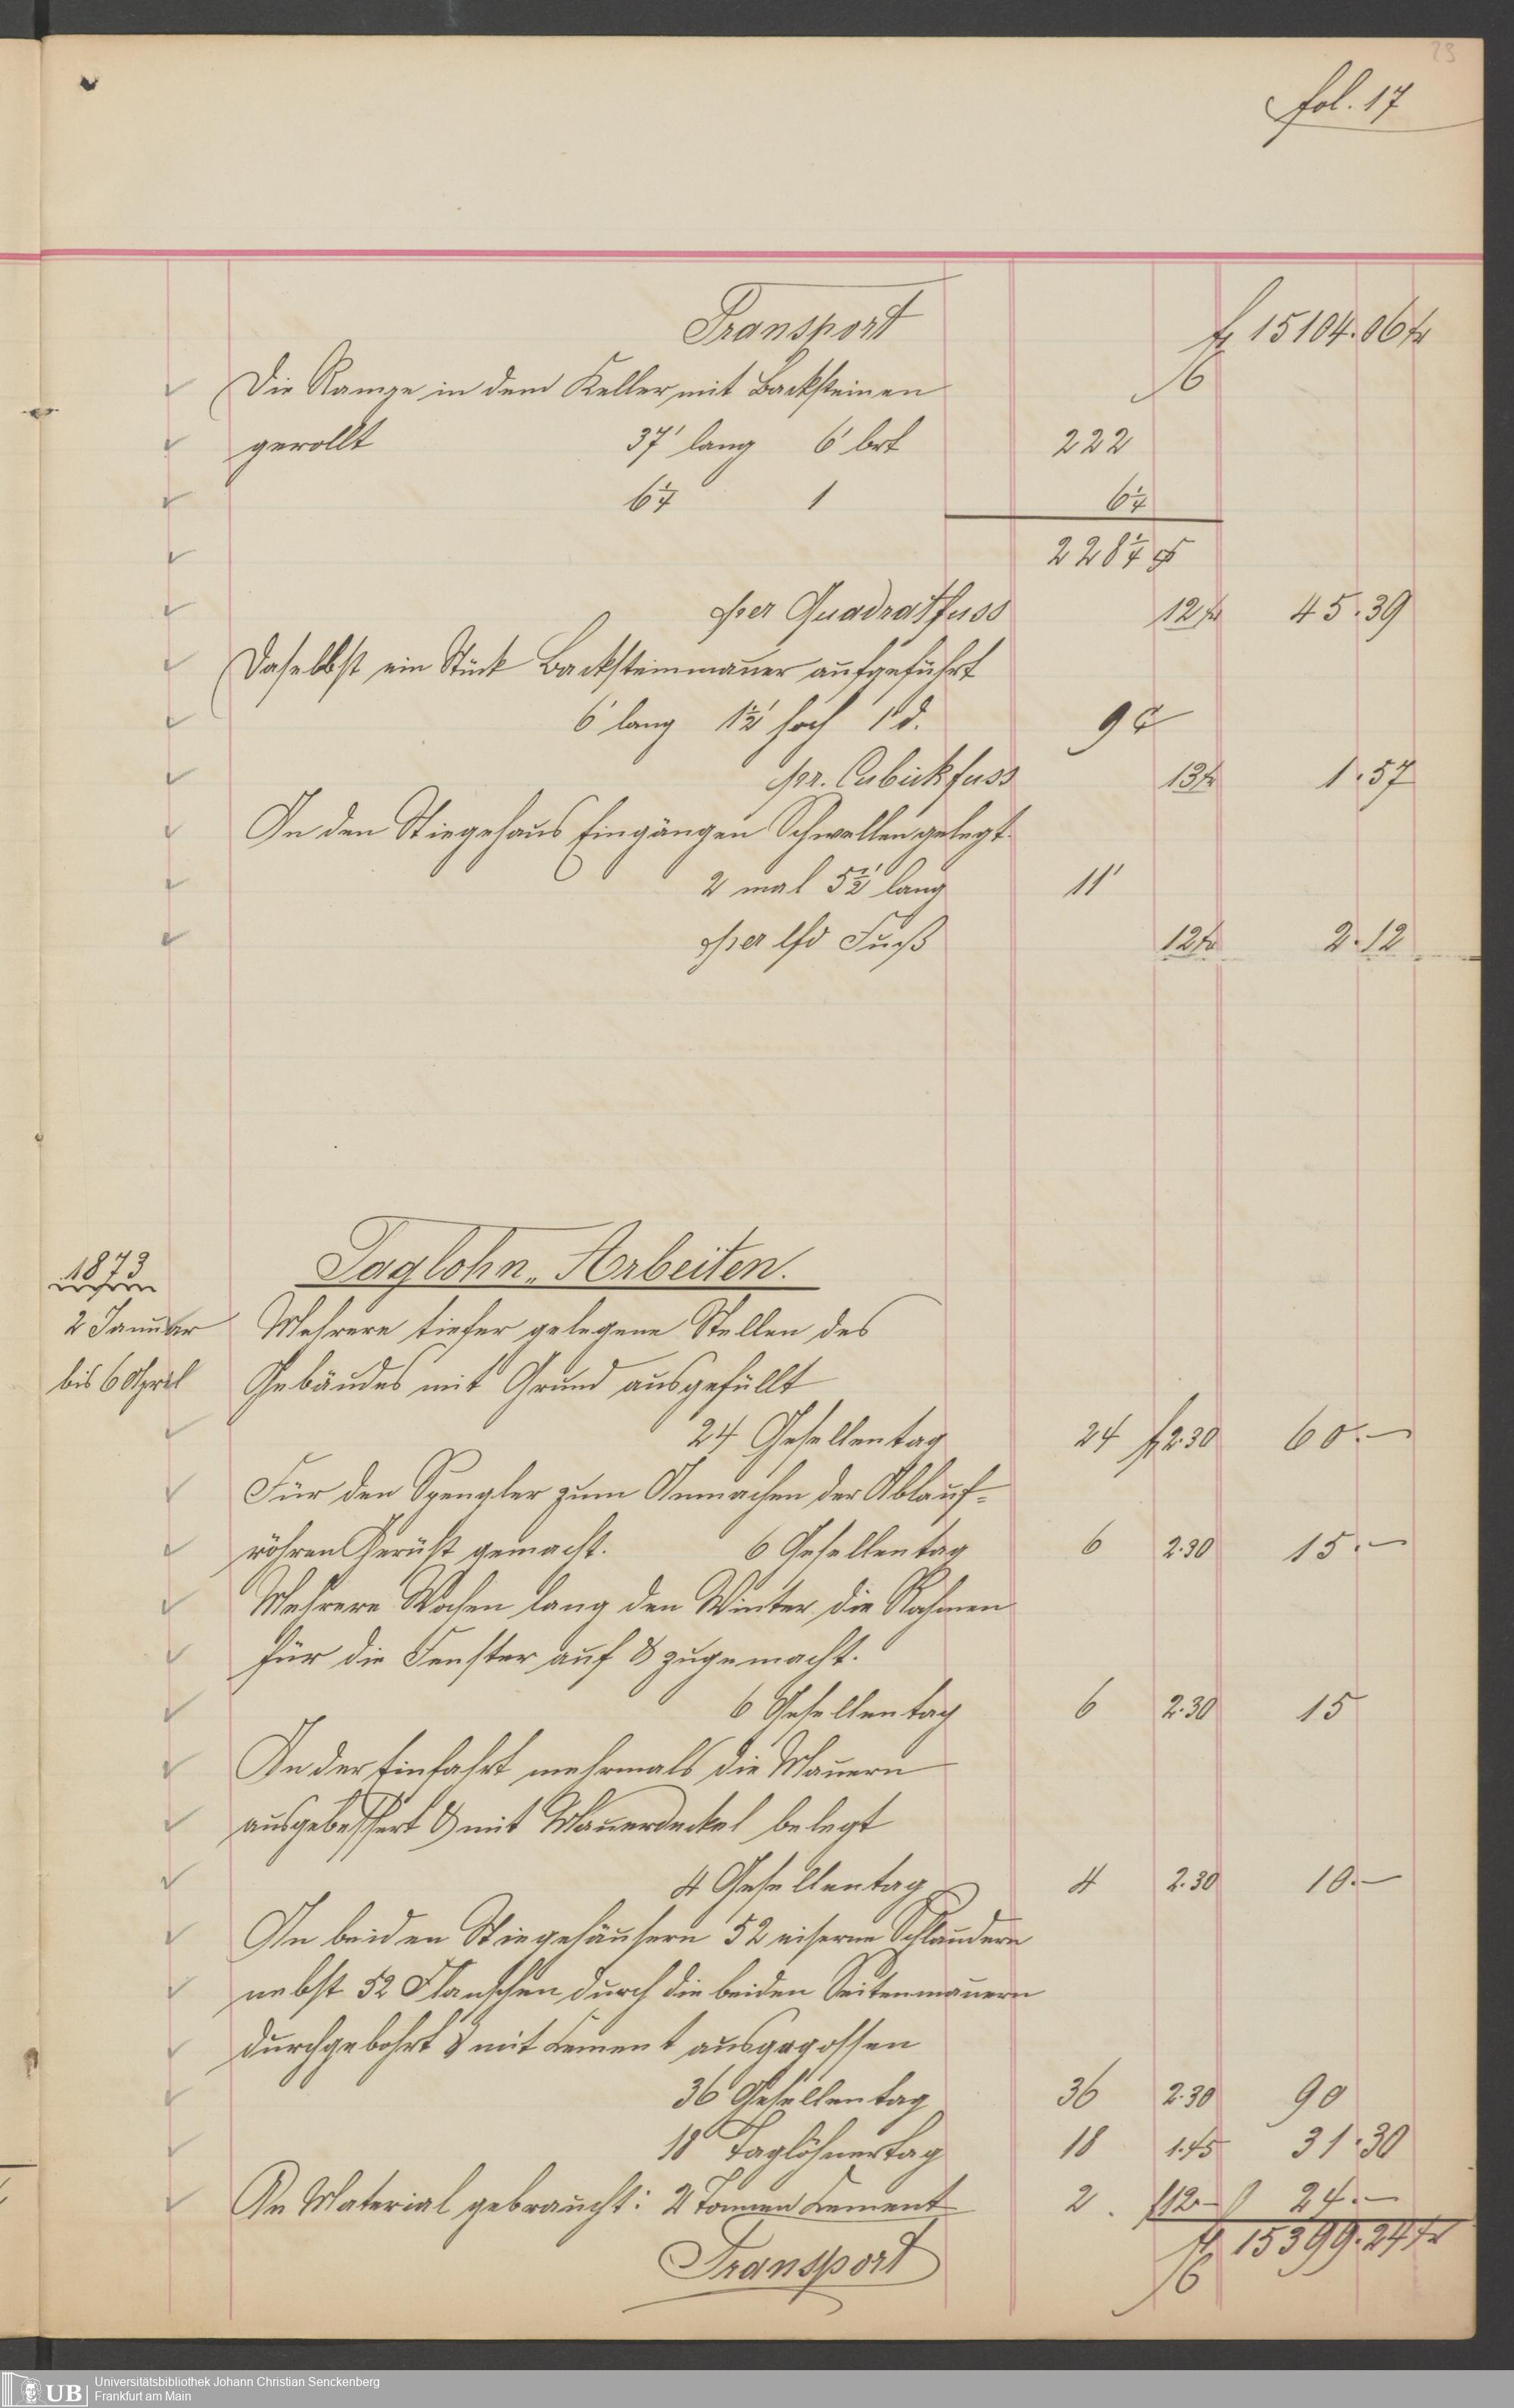 23
fol. 17
Transport fl 15104.06 kr
Die Rampe in dem Keller mit Backsteinen
gerollt 37' lang 6' brt 222
6¼ 1 6¼
228¼
per Quadratfuss 12 kr 45.39
Daselbst ein Stück Backsteinmauer aufgeführt
6' lang 1½' hoch 1' d. 9 c
pr. Cubickfuss 13 kr 1.57
In den Stiegehaus Eingängen Schwellen gelegt
2 mal 5½' lang 11'
per lfd Fuß 12 kr 2.12
Taglohn-Arbeiten.
1873
2 Januar Mehrere tiefer gelegene Stellen des
bis 6 April Gebäudes mit Grund ausgefüllt
24 Gesellentag 24 fl 2.30 60.—
Für den Spengler zum Anmachen der Ablauf-
röhren Gerüst gemacht. 6 Gesellentag 6 2.30 15.—
Mehrere Wochen lang den Winter die Rahmen
für die Fenster auf & zugemacht.
6 Gesellentag 6 2.30 15
In der Einfahrt mehrmals die Mauern
ausgebessert & mit Mauerdeckel belegt
4 Gesellentag 4 2.30 10.—
In beiden Stiegehäusern 52 eiserne Schlaudern
nebst 52 Flanschen durch die beiden Seitenmauern
durchgebohrt & mit Cement ausgegossen
36 Gesellentag 36 2.30 90
18 Taglöhnertag 18 1.45 31.30
An Material gebraucht: 2 Tonnen Cement 2 fl 12— 24.—
Transport fl 15399.24 kr
UB Universitätsbibliothek Johann Christian Senckenberg
Frankfurt am Main